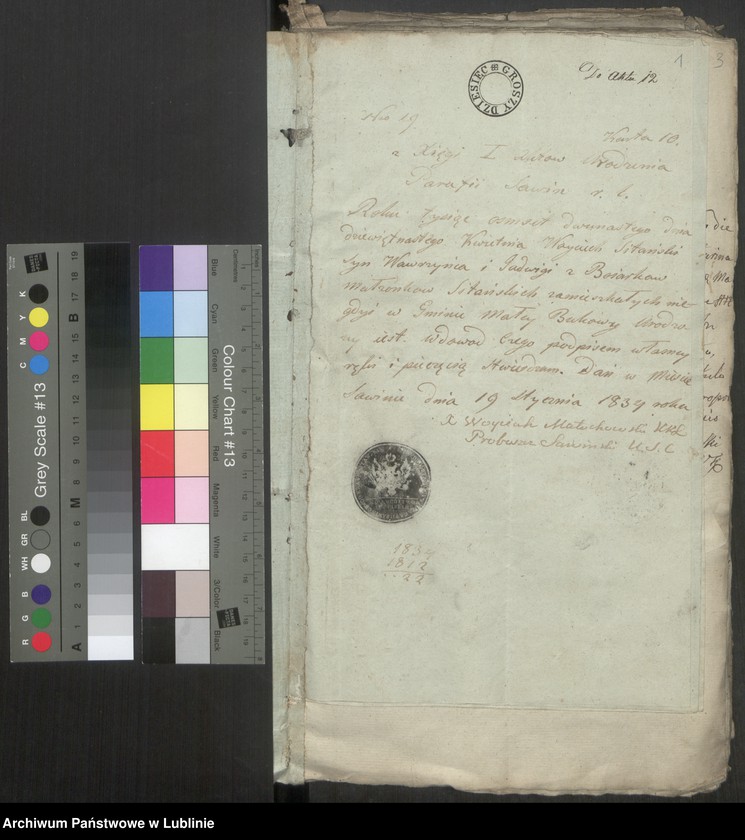 DZIESIĘC GROSZY
Do Aktu 12
1
3
Nro 19
Karta 10.
z Xięgi I Aktow Urodzenia
Parafii Sawin r. l.
Roku tysiąc osmset dwunastego dnia
dziewiętnastego Kwietnia Woyciech Sitański
syn Wawrzyńca i Jadwigi z Boiarkow
małżonkow Sitańskich zamieszkałych nie-
gdyś w Gminie Małey Bukowy Urodzo
ny iest. Wdowod czego podpisem własney
ręki i pieczęcią stwierdzam. Dań w Mieście
Sawinie dnia 19 Stycznia 1834 roku
X Woyciech Małachowski
Proboszcz Sawiński U.S.C
1834
1812
22
Grey Scale #13
C M Y K
WH GR BL
R G B
A 1 2 3 4 5 6 M 7 8 9 10 11 12 13 14 15 B 16 17 18 19
Colour Chart #13
Blue
Cyan
Green
Yellow
Red
Magenta
White
3/Color
Black
Centimetres
Inches
Archiwum Państwowe w Lublinie